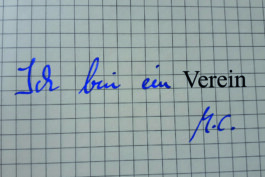 Ich bin ein Verein
M.C.